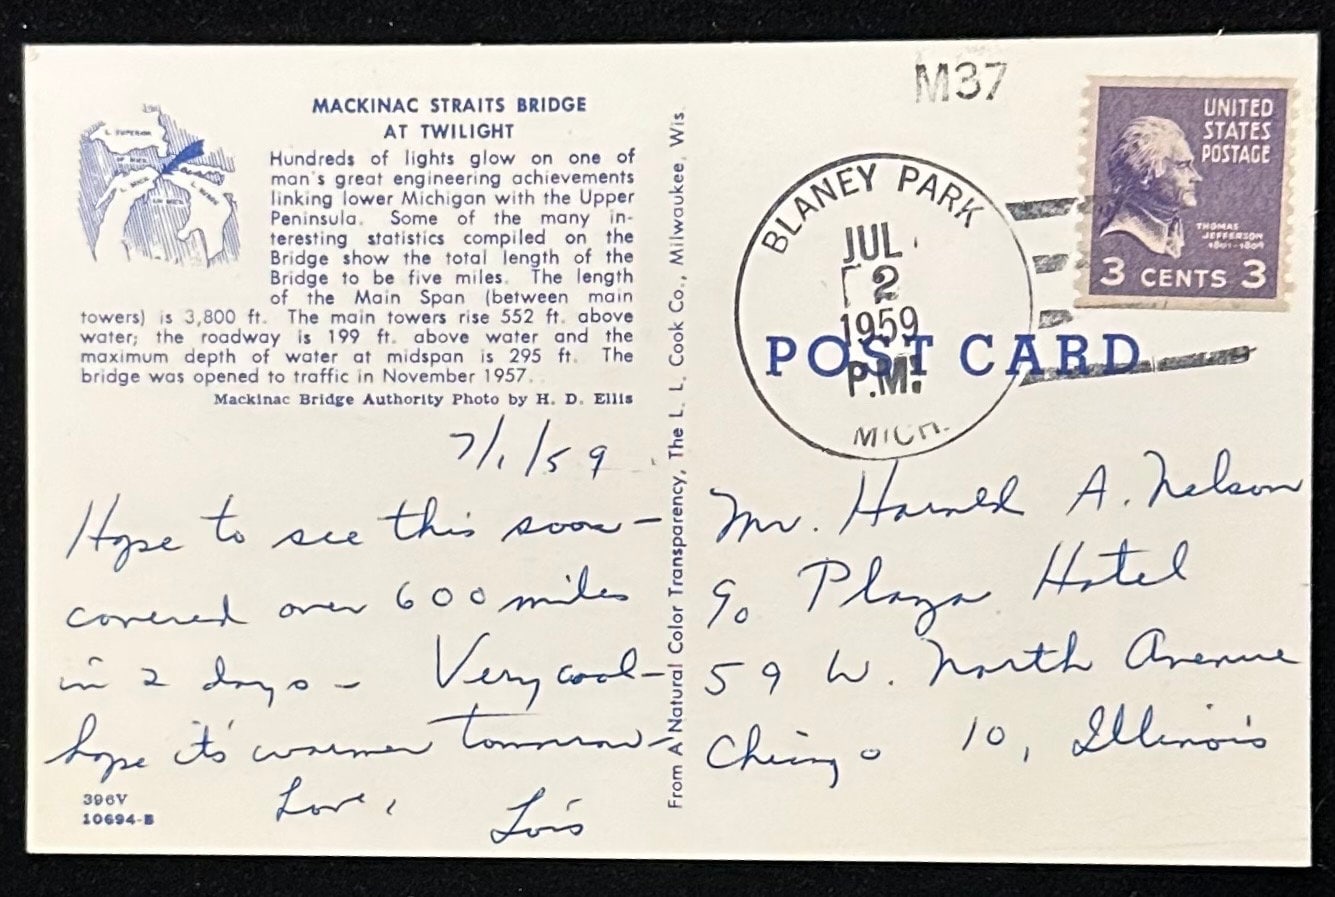 MACKINAC STRAITS BRIDGE
AT TWILIGHT
Hundreds of lights glow on one of
man's great engineering achievements
linking lower Michigan with the Upper
Peninsula. Some of the many in-
teresting statistics compiled on the
Bridge show the total length of the
Bridge to be five miles. The length
of the Main Span (between main
towers) is 3,800 ft. The main towers rise 552 ft. above
water; the roadway is 199 ft. above water and the
maximum depth of water at midspan is 295 ft. The
bridge was opened to traffic in November 1957.
Mackinac Bridge Authority Photo by H. D. Ellis
L. SUPERIOR
7/1/59
Hope to see this soon –
covered over 600 miles
in 2 days – Very cool –
hope it's warmer tomorrow –
Love,
Lois
396V
10694-B
From A Natural Color Transparency, The L. L. Cook Co., Milwaukee, Wis.
M37
BLANEY PARK
JUL
2
1959
P.M.
MICH.
UNITED
STATES
POSTAGE
THOMAS
JEFFERSON
1801-1809
3 CENTS 3
POST CARD
Mr. Harold A. Nelson
c/o Plaza Hotel
59 W. North Avenue
Chicago 10, Illinois